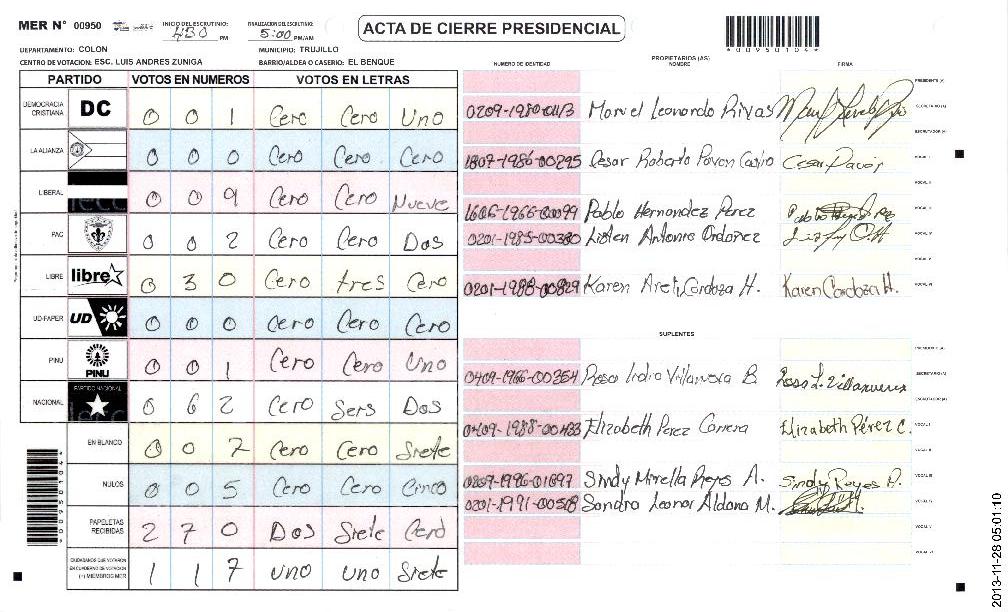 MER N° 00950
INICIO DEL ESCRUTINIO: 4:30 PM
FINALIZACION DEL ESCRUTINIO: 5:00 PM/AM
ACTA DE CIERRE PRESIDENCIAL
00950104
DEPARTAMENTO: COLON
MUNICIPIO: TRUJILLO
CENTRO DE VOTACION: ESC. LUIS ANDRES ZUNIGA
BARRIO/ALDEA O CASERIO: EL BENQUE
PARTIDO VOTOS EN NUMEROS VOTOS EN LETRAS
DEMOCRACIA CRISTIANA DC 0 0 1 Cero Cero Uno
LA ALIANZA 0 0 0 Cero Cero Cero
LIBERAL 0 0 9 Cero Cero Nueve
PAC 0 0 2 Cero Cero Dos
LIBRE libre 0 3 0 Cero tres Cero
UD-FAPER UD 0 0 0 Cero Cero Cero
PINU PINU 0 0 1 Cero Cero Uno
NACIONAL PARTIDO NACIONAL 0 6 2 Cero Seis Dos
EN BLANCO 0 0 7 Cero Cero Siete
NULOS 0 0 5 Cero Cero Cinco
PAPELETAS RECIBIDAS 2 7 0 Dos Siete Cero
CIUDADANOS QUE VOTARON EN CUADERNO DE VOTACION (+) MIEMBROS MER 1 1 7 uno uno Siete
PROPIETARIOS (AS)
NUMERO DE IDENTIDAD NOMBRE FIRMA
PRESIDENTE (A)
Marvel Leonardo Rivas SECRETARIO (A)
ESCRUTADOR (A)
1807-1986-00295 Cesar Roberto Pavon Castro Cesar Pavon VOCAL I
VOCAL II
1606-1966-00099 Pablo Hernandez Perez VOCAL III
0201-1985-00380 Antonio Ordoñez VOCAL IV
VOCAL V
0201-1988-00829 Karen Cardoza H. Karen Cardoza H. VOCAL VI
SUPLENTES
PRESIDENTE (A)
0409-1966-00354 Rosa Lidia Villanueva B. Rosa L. Villanueva SECRETARIO (A)
ESCRUTADOR (A)
0209-1988-00433 Elizabeth Perez Carrera Elizabeth Pérez C. VOCAL I
VOCAL II
0209-1996-01697 Sindy Mirella Reyes A. Sindy Reyes A. VOCAL III
0201-1991-00508 Sandra Leonor Aldana M. VOCAL IV
VOCAL V
VOCAL VI
00950104
2013-11-28 05:01:10